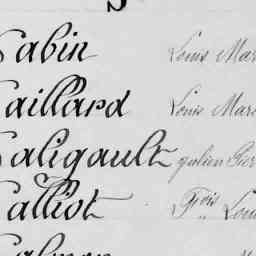 S
Sabin Louis Mar
Saillard Louis Mari
Saligault Julien Pier
Salliot Fçois Loui
Salmon